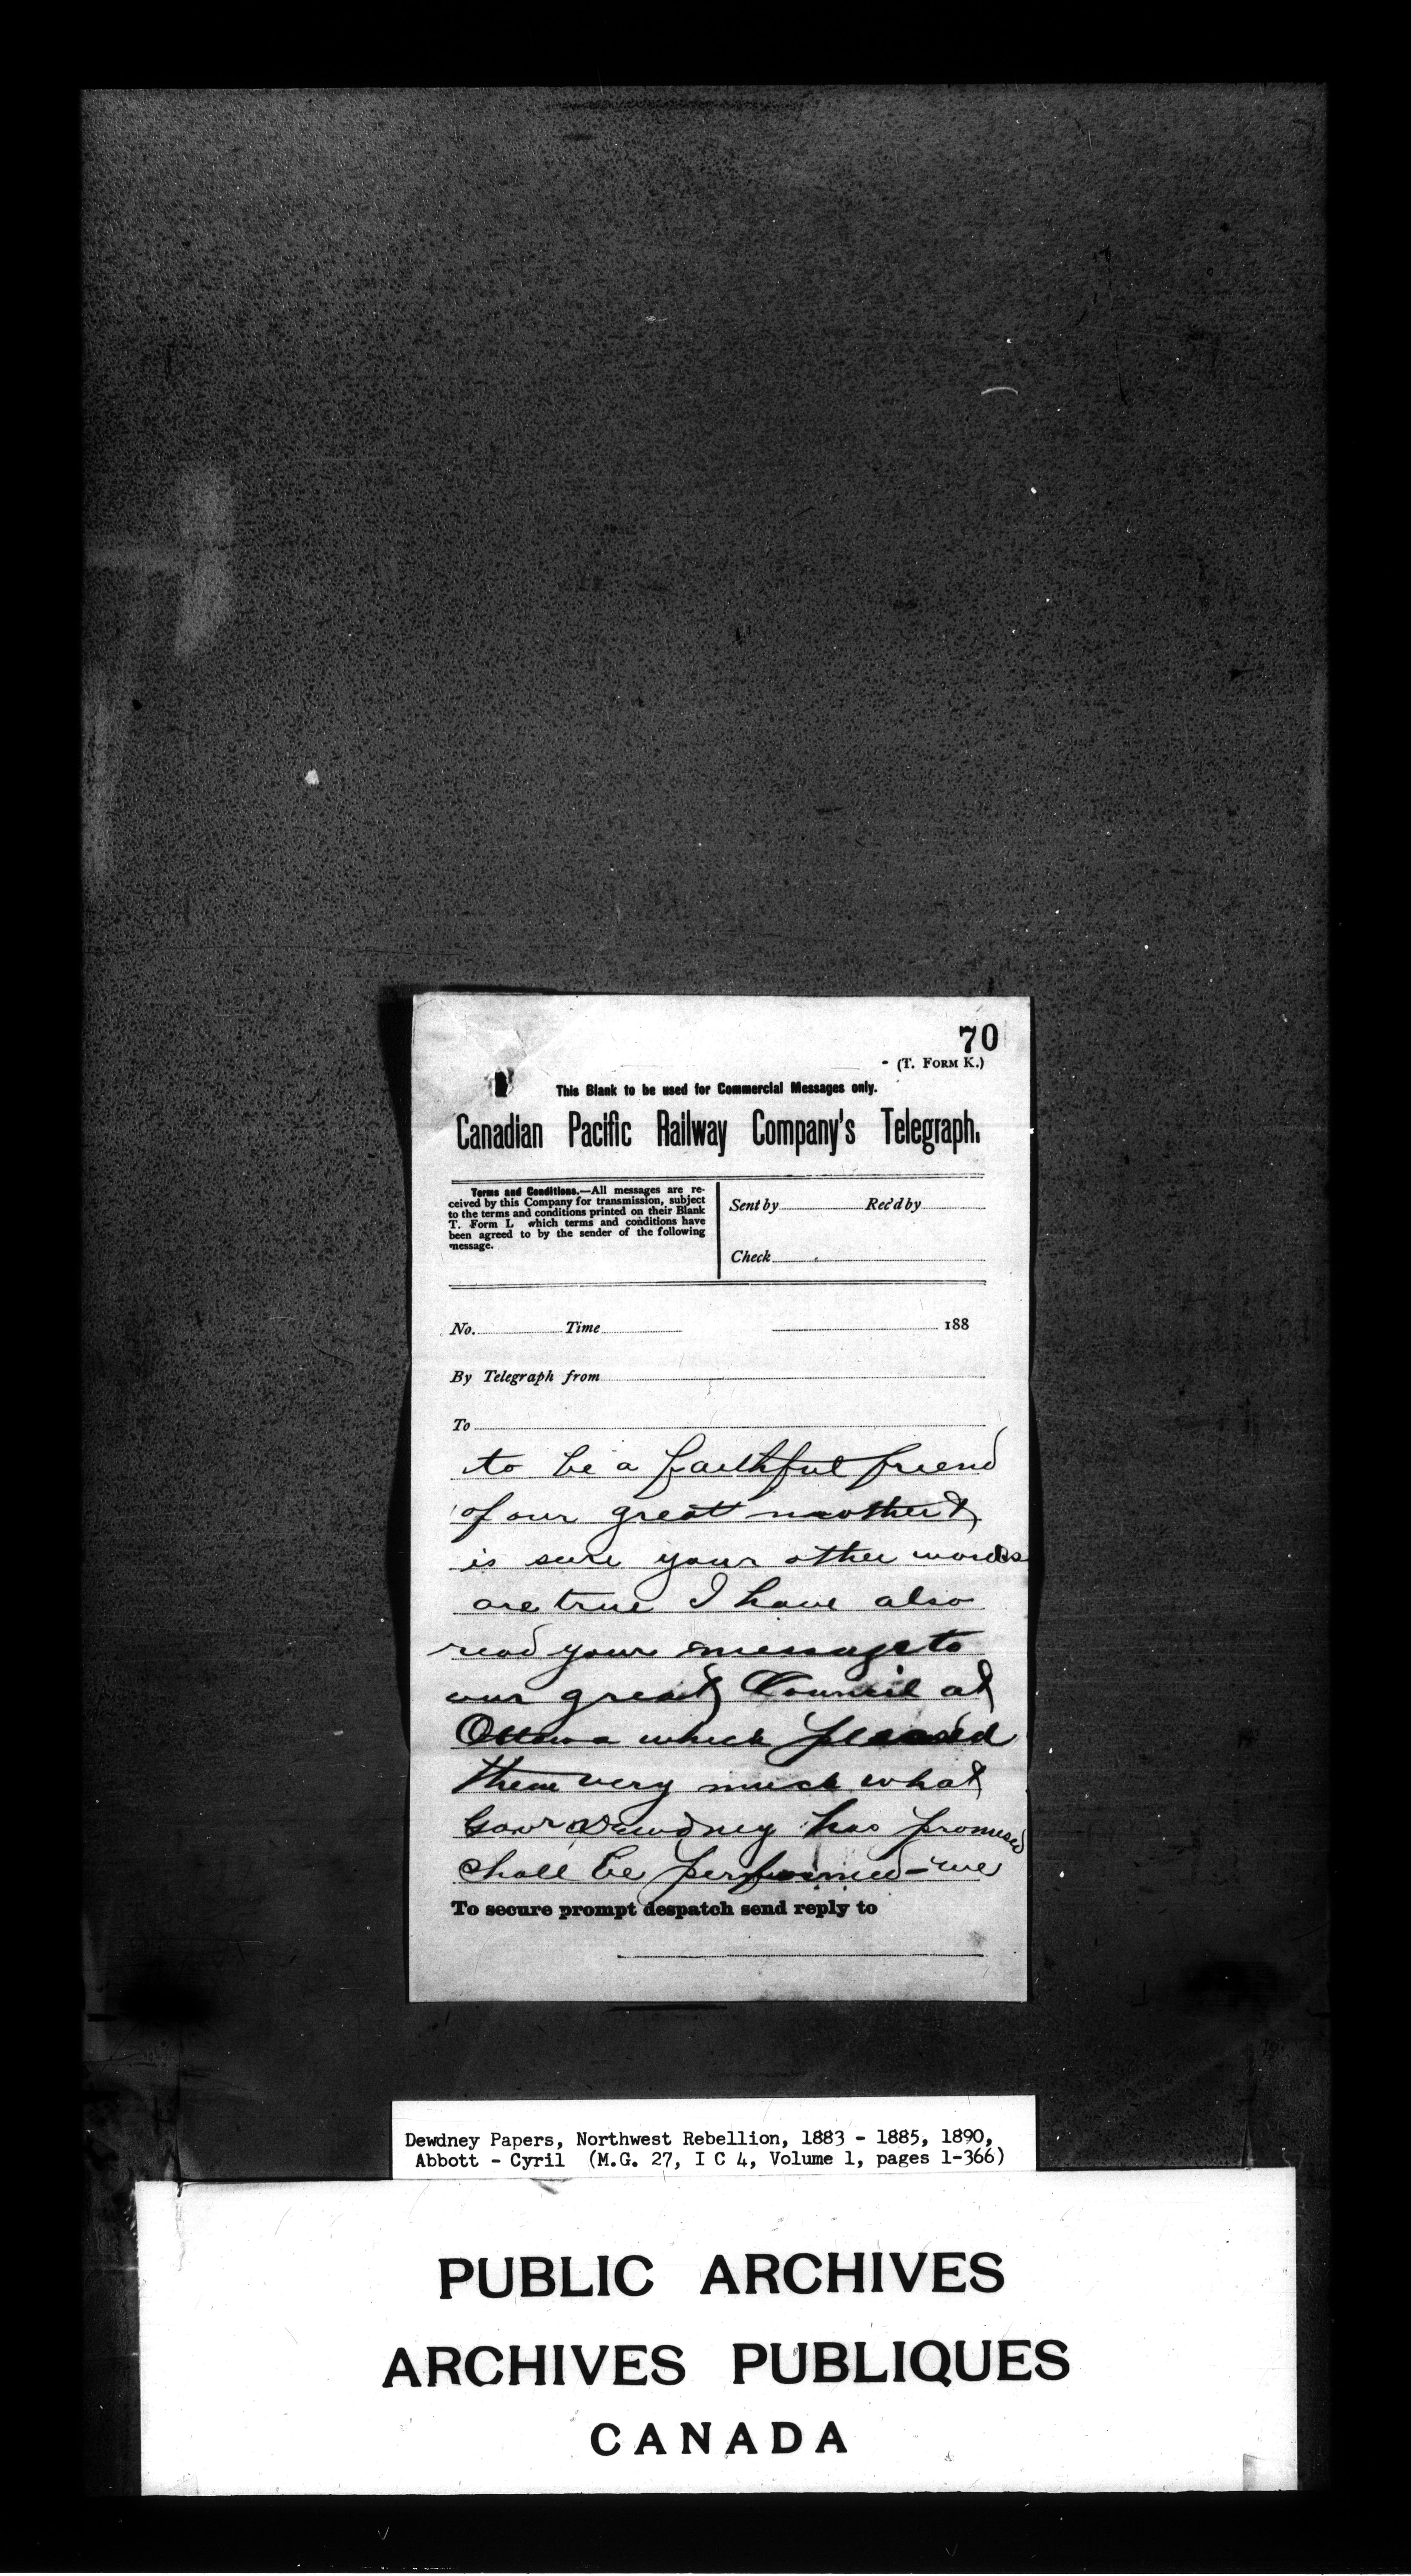 70
- (T. FORM K.)
This Blank to be used for Commercial Messages only.
Canadian Pacific Railway Company's Telegraph.
Terms and Conditions.—All messages are re-
ceived by this Company for transmission, subject
to the terms and conditions printed on their Blank
T. Form L which terms and conditions have
been agreed to by the sender of the following
message.
Sent by Rec'd by
Check
No. Time 188
By Telegraph from
To
to be a faithful friend
of our great mother &
is sure your other words
are true I have also
read your message to
our great Council at
Ottawa which pleased
them very much what
Govr Dewdney has promised
shall be performed - we
To secure prompt despatch send reply to
Dewdney Papers, Northwest Rebellion, 1883 - 1885, 1890,
Abbott - Cyril (M.G. 27, I C 4, Volume 1, pages 1-366)
PUBLIC ARCHIVES
ARCHIVES PUBLIQUES
CANADA